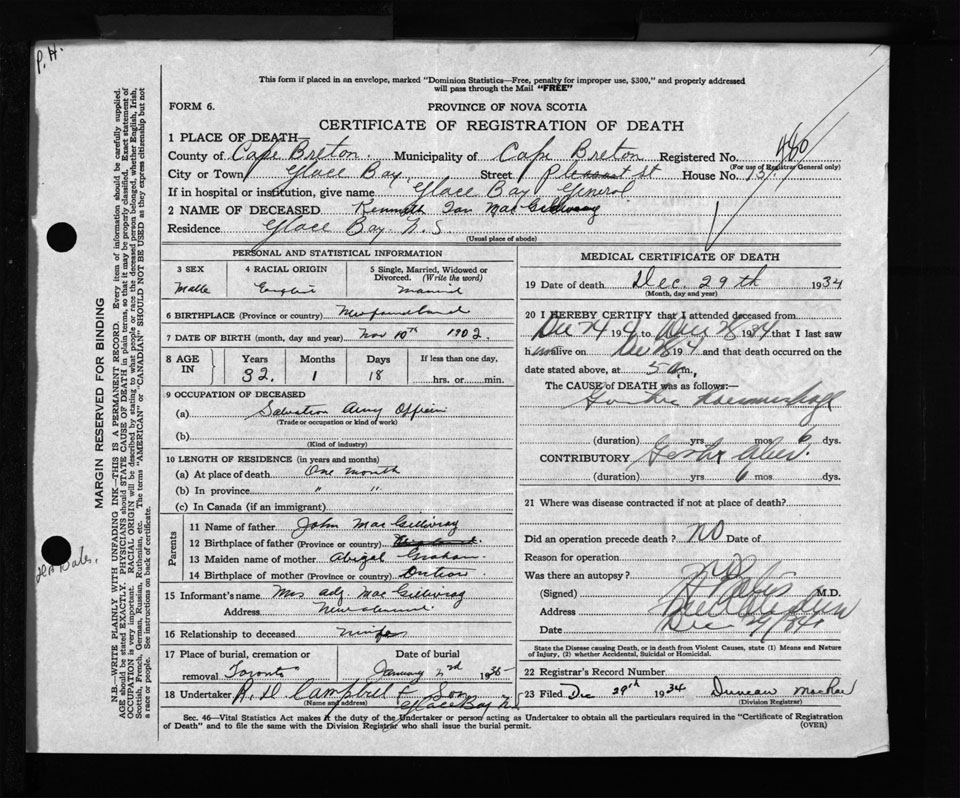 P.H.
This form if placed in an envelope, marked "Dominion Statistics—Free, penalty for improper use, $300," and properly addressed
will pass through the Mail "FREE"
FORM 6.
PROVINCE OF NOVA SCOTIA
CERTIFICATE OF REGISTRATION OF DEATH
1 PLACE OF DEATH—
County of Cape Breton Municipality of Cape Breton Registered No. 480
(For use of Registrar General only)
City or Town Glace Bay Street Pleasant st House No. 137
If in hospital or institution, give name Glace Bay General
2 NAME OF DECEASED Kenneth Ian MacGillivray
Residence Glace Bay N.S.
(Usual place of abode)
PERSONAL AND STATISTICAL INFORMATION
3 SEX
Malle
4 RACIAL ORIGIN
5 Single, Married, Widowed or
Divorced. (Write the word)
Married
6 BIRTHPLACE (Province or country) Newfoundland
7 DATE OF BIRTH (month, day and year) Nov 10th 1902.
8 AGE IN
Years Months Days If less than one day,
32. 1 18 hrs. or min.
9 OCCUPATION OF DECEASED
(a) Salvation Army Officer
(Trade or occupation or kind of work)
(b)
(Kind of industry)
10 LENGTH OF RESIDENCE (in years and months)
(a) At place of death One month
(b) In province " "
(c) In Canada (if an immigrant)
Parents
11 Name of father John MacGillivray
12 Birthplace of father (Province or country)
13 Maiden name of mother Abigal Graham
14 Birthplace of mother (Province or country)
15 Informant's name Mrs adj. MacGillivray
Address
16 Relationship to deceased
17 Place of burial, cremation or removal Toronto
Date of burial
January 2nd 1935
18 Undertaker R. D. Campbell & Son
(Name and address) Glace Bay N.S.
MEDICAL CERTIFICATE OF DEATH
19 Date of death Dec. 29th 1934
(Month, day and year)
20 I HEREBY CERTIFY that I attended deceased from
Dec 24 194 to Dec 28 1934 that I last saw
him alive on Dec 28 194 and that death occurred on the
date stated above, at 5 a.m.
The CAUSE of DEATH was as follows:—
Gastric haemorrhage
(duration) yrs mos 6 dys.
CONTRIBUTORY Gastric ulcer.
(duration) yrs 6 mos dys.
21 Where was disease contracted if not at place of death?
Did an operation precede death? NO Date of
Reason for operation
Was there an autopsy?
(Signed) M.D.
Address
Date Dec 29/34
State the Disease causing Death, or in death from Violent Causes, state (1) Means and Nature
of Injury, (2) whether Accidental, Suicidal or Homicidal.
22 Registrar's Record Number
23 Filed Dec 29th 1934 Duncan MacRae
(Division Registrar)
Sec. 46—Vital Statistics Act makes it the duty of the Undertaker or person acting as Undertaker to obtain all the particulars required in the "Certificate of Registration
of Death" and to file the same with the Division Registrar who shall issue the burial permit.
(OVER)
MARGIN RESERVED FOR BINDING
N.B.—WRITE PLAINLY WITH UNFADING INK—THIS IS A PERMANENT RECORD. Every item of information should be carefully supplied.
AGE should be stated EXACTLY. PHYSICIANS should STATE CAUSE OF DEATH in plain terms, so that it may be properly classified. Exact statement of
OCCUPATION is very important. RACIAL ORIGIN will be described by stating to what people or race the deceased person belonged, whether English, Irish,
Scottish, French, German, Russian, Ruthenian, etc. The terms "AMERICAN" or "CANADIAN" SHOULD NOT BE USED as they express citizenship but not
a race or people. See instructions on back of certificate.